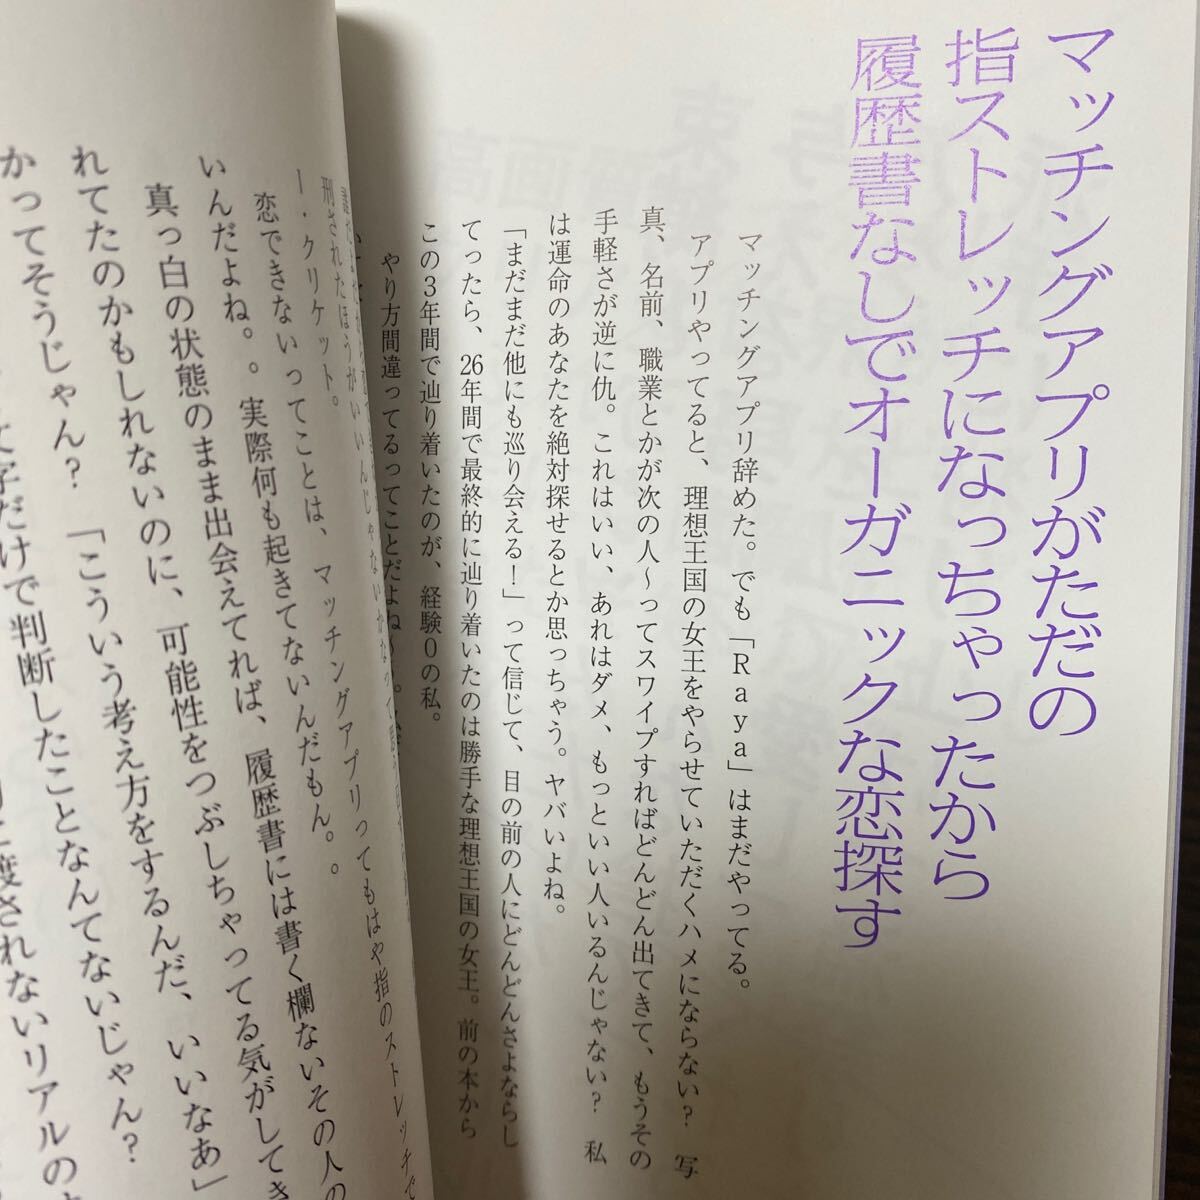 マッチングアプリがただの
指ストレッチになっちゃったから
履歴書なしでオーガニックな恋探す
マッチングアプリ辞めた。でも「Raya」はまだやってる。
アプリやってると、理想王国の女王をやらせていただくハメにならない？　写
真、名前、職業とかが次の人〜ってスワイプすればどんどん出てきて、もうその
手軽さが逆に仇。これはいい、あれはダメ、もっといい人いるんじゃない？　私
は運命のあなたを絶対探せるとか思っちゃう。ヤバいよね。
「まだまだ他にも巡り会える！」って信じて、目の前の人にどんどんさよならし
てったら、26年間で最終的に辿り着いたのは勝手な理想王国の女王。前の本から
この3年間で辿り着いたのが、経験0の私。
やり方間違ってるってことだよね
刑されたほうがいいんじゃないかなって
ー・クリケット。
恋できないってことは、マッチングアプリってもはや指のストレッチで
いんだよね。。実際何も起きてないんだもん。。
真っ白の状態のまま出会えてれば、履歴書には書く欄ないその人の
れてたのかもしれないのに、可能性をつぶしちゃってる気がしてき
かってそうじゃん？　「こういう考え方をするんだ、いいなあ」
文字だけで判断したことなんてないじゃん？
渡されないリアルの